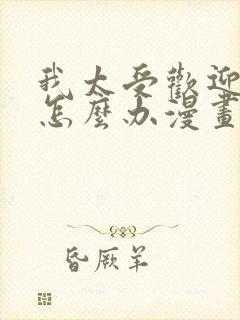 我太受歡迎
怎麼办漫畫
昏厥羊